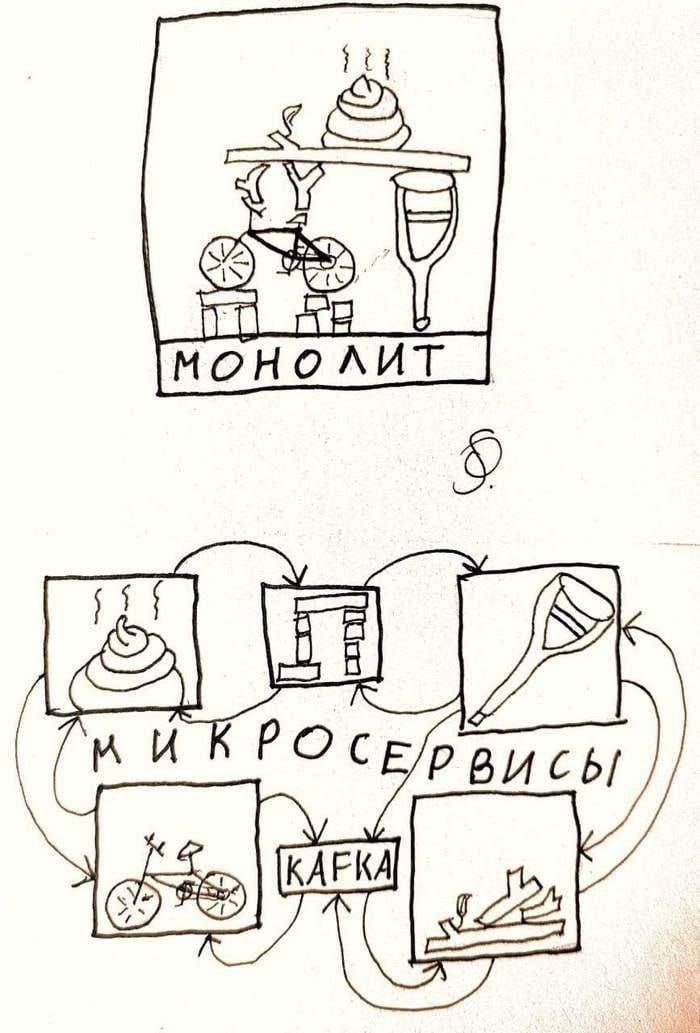 МОНОЛИТ
МИКРОСЕРВИСЫ
KAFKA